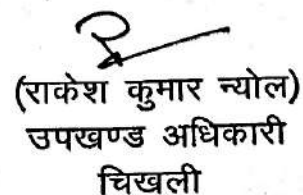 (राकेश कुमार न्योल)
उपखण्ड अधिकारी
चिखली